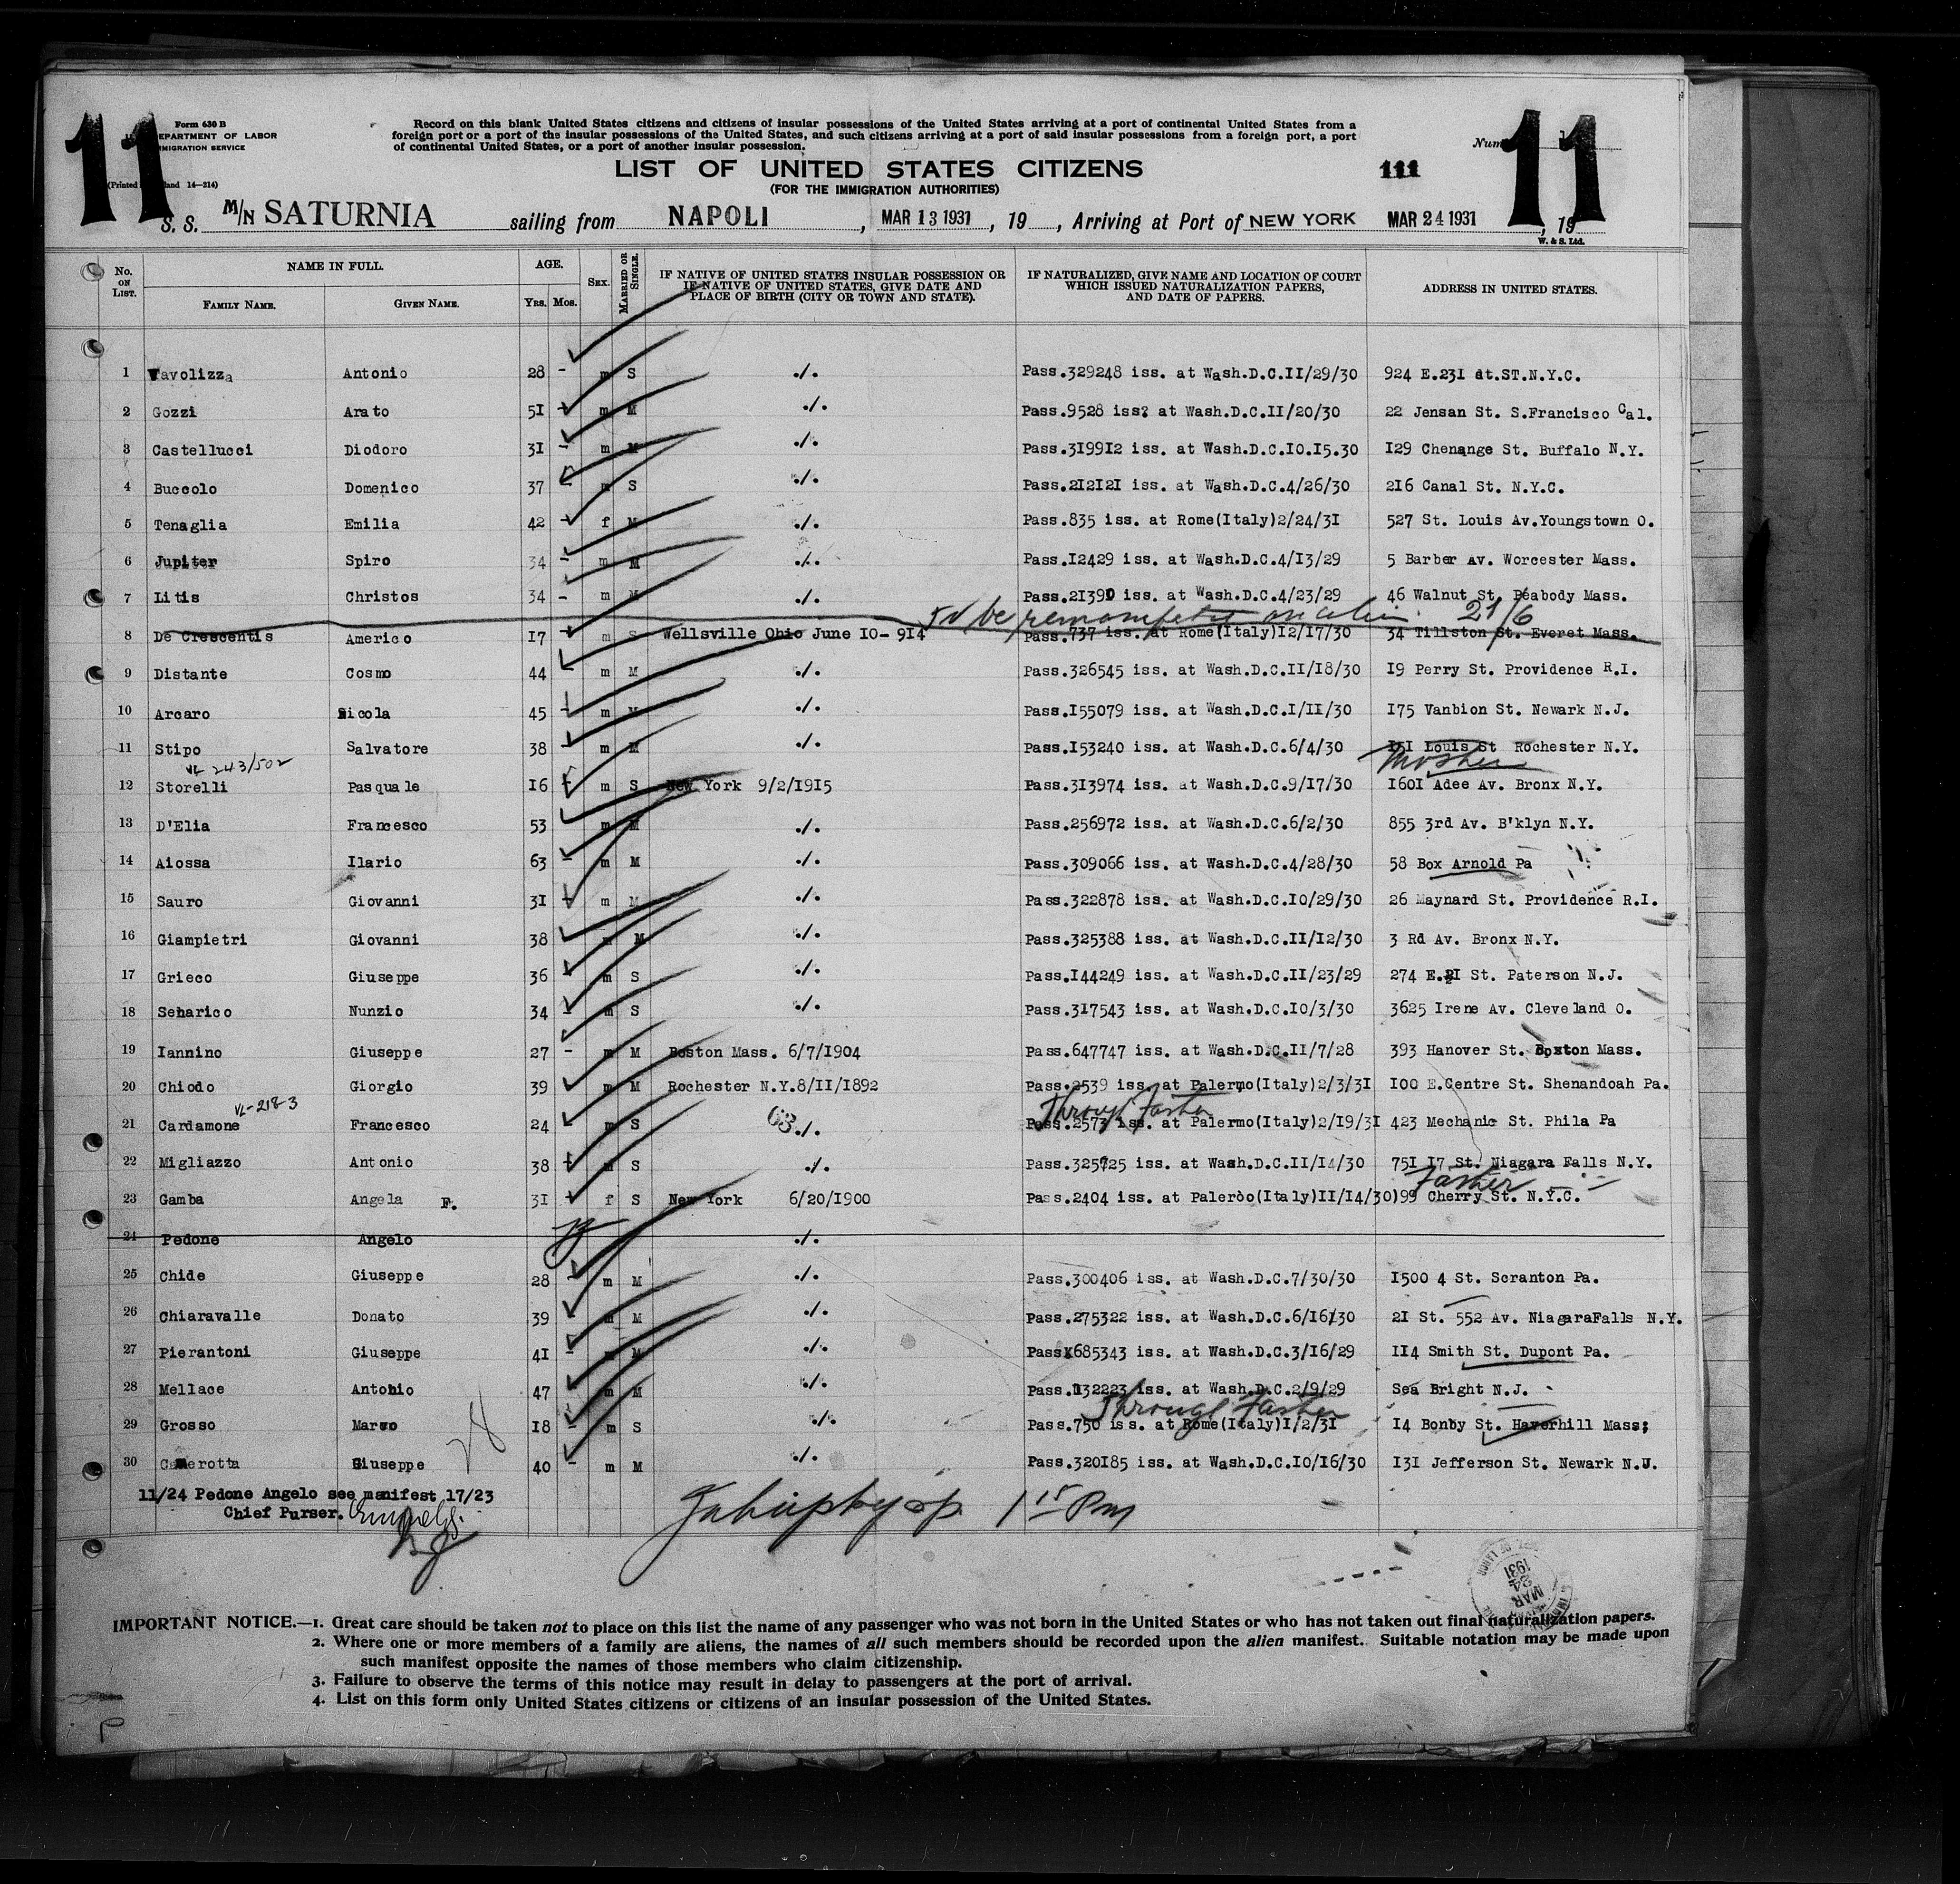 11
11
Form 630 B
DEPARTMENT OF LABOR
IMMIGRATION SERVICE
Record on this blank United States citizens and citizens of insular possessions of the United States arriving at a port of continental United States from a
foreign port or a port of the insular possessions of the United States, and such citizens arriving at a port of said insular possessions from a foreign port, a port
of continental United States, or a port of another insular possession.
LIST OF UNITED STATES CITIZENS
111
(FOR THE IMMIGRATION AUTHORITIES)
S. S. M/N SATURNIA sailing from NAPOLI, MAR 13 1931, 19 , Arriving at Port of NEW YORK MAR 24 1931, 19
W. & S. Ltd.
No. ON LIST. NAME IN FULL. AGE. SEX. MARRIED OR SINGLE. IF NATIVE OF UNITED STATES INSULAR POSSESSION OR IF NATIVE OF UNITED STATES, GIVE DATE AND PLACE OF BIRTH (CITY OR TOWN AND STATE). IF NATURALIZED, GIVE NAME AND LOCATION OF COURT WHICH ISSUED NATURALIZATION PAPERS, AND DATE OF PAPERS. ADDRESS IN UNITED STATES.
FAMILY NAME. GIVEN NAME. Yrs. Mos.
1 Tavolizza Antonio 28 - m S ./. Pass.329248 iss. at Wash.D.C.II/29/30 924 E.23I dt.ST.N.Y.C.
2 Gozzi Arato 5I - m M ./. Pass.9528 iss. at Wash.D.C.II/20/30 22 Jensan St. S.Francisco Cal.
3 Castellucci Diodoro 3I - m M ./. Pass.3I99I2 iss. at Wash.D.C.IO.I5.30 I29 Chenange St. Buffalo N.Y.
4 Buccolo Domenico 37 - m S ./. Pass.2I2I2I iss. at Wash.D.C.4/26/30 2I6 Canal St. N.Y.C.
5 Tenaglia Emilia 42 - f M ./. Pass.835 iss. at Rome(Italy)2/24/3I 527 St. Louis Av.Youngstown O.
6 Jupiter Spiro 34 - m M ./. Pass.I2429 iss. at Wash.D.C.4/I3/29 5 Barber Av. Worcester Mass.
7 Litis Christos 34 - m M ./. Pass.2I390 iss. at Wash.D.C.4/23/29 46 Walnut St. Peabody Mass.
21/6
8 De Crescentis Americo I7 - m S Wellsville Ohio June IO- 9I4 Pass.737 iss. at Rome(Italy)I2/I7/30 34 Tillston St. Everet Mass.
9 Distante Cosmo 44 m M ./. Pass.326545 iss. at Wash.D.C.II/I8/30 I9 Perry St. Providence R.I.
10 Arcaro Nicola 45 - m M ./. Pass.I55079 iss. at Wash.D.C.I/II/30 I75 Vanbion St. Newark N.J.
11 Stipo Salvatore 38 - m M ./. Pass.I53240 iss. at Wash.D.C.6/4/30 I5I Louis St Rochester N.Y.
VL 243/502 Mother
12 Storelli Pasquale I6 - m S New York 9/2/I9I5 Pass.3I3974 iss. at Wash.D.C.9/I7/30 I60I Adee Av. Bronx N.Y.
13 D'Elia Francesco 53 m M ./. Pass.256972 iss. at Wash.D.C.6/2/30 855 3rd Av. B'klyn N.Y.
14 Aiossa Ilario 63 - m M ./. Pass.309066 iss. at Wash.D.C.4/28/30 58 Box Arnold Pa
15 Sauro Giovanni 3I - m M ./. Pass.322878 iss. at Wash.D.C.IO/29/30 26 Maynard St. Providence R.I.
16 Giampietri Giovanni 38 - m M ./. Pass.325388 iss. at Wash.D.C.II/I2/30 3 Rd Av. Bronx N.Y.
17 Grieco Giuseppe 36 - m S ./. Pass.I44249 iss. at Wash.D.C.II/23/29 274 E.2I St. Paterson N.J.
18 Scharico Nunzio 34 - m S ./. Pass.3I7543 iss. at Wash.D.C.IO/3/30 3625 Irene Av. Cleveland O.
19 Iannino Giuseppe 27 - m M Boston Mass. 6/7/I904 Pass.647747 iss. at Wash.D.C.II/7/28 393 Hanover St. Boston Mass.
20 Chiodo Giorgio 39 m M Rochester N.Y.8/II/I892 Pass.2539 iss. at Palermo(Italy)2/3/3I IOO E.Centre St. Shenandoah Pa.
VL-2183 63 Through Father
21 Cardamone Francesco 24 - m S ./. Pass.2573 iss. at Palermo(Italy)2/I9/3I 423 Mechanic St. Phila Pa
22 Migliazzo Antonio 38 - M S ./. Pass.325725 iss. at Wash.D.C.II/I4/30 75I I7 St. Niagara Falls N.Y.
Father
23 Gamba Angela F. 3I - f S New York 6/20/I900 Pass.2404 iss. at Paleròo(Italy)II/I4/30)99 Cherry St. N.Y.C.
24 Pedone Angelo ./.
25 Chide Giuseppe 28 - m M ./. Pass.300406 iss. at Wash.D.C.7/30/30 I500 4 St. Scranton Pa.
26 Chiaravalle Donato 39 m M ./. Pass.275322 iss. at Wash.D.C.6/I6/30 2I St. 552 Av. NiagaraFalls N.Y.
27 Pierantoni Giuseppe 4I - m M ./. Pass.685343 iss. at Wash.D.C.3/I6/29 II4 Smith St. Dupont Pa.
28 Mellace Antonio 47 m M ./. Pass.I32223 iss. at Wash.D.C.2/9/29 Sea Bright N.J.
Through Father
29 Grosso Marco I8 - m S ./. Pass.750 iss. at Rome(Italy)I/2/3I I4 Bonby St. Haverhill Mass;
30 Camerotta Giuseppe 40 - m M ./. Pass.320I85 iss. at Wash.D.C.IO/I6/30 I3I Jefferson St. Newark N.J.
11/24 Pedone Angelo see manifest 17/23
Chief Purser.
1 15 Pm
MAR 24 1931
IMPORTANT NOTICE.—1. Great care should be taken not to place on this list the name of any passenger who was not born in the United States or who has not taken out final naturalization papers.
2. Where one or more members of a family are aliens, the names of all such members should be recorded upon the alien manifest. Suitable notation may be made upon
such manifest opposite the names of those members who claim citizenship.
3. Failure to observe the terms of this notice may result in delay to passengers at the port of arrival.
4. List on this form only United States citizens or citizens of an insular possession of the United States.
P